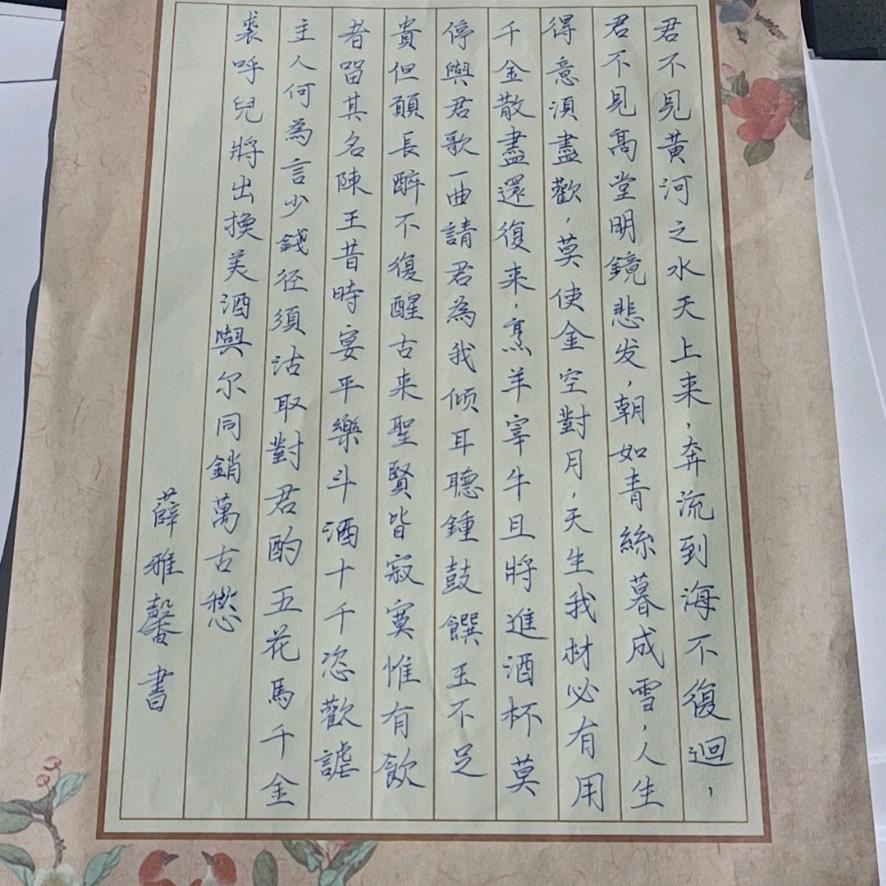 君不見黃河之水天上来，奔流到海不復迴，
君不見高堂明鏡悲发，朝如青絲暮成雪，人生
得意須盡歡，莫使金空對月，天生我材必有用
千金散盡還復来，烹羊宰牛且將進酒杯莫
停與君歌一曲請君為我傾耳聽鍾鼓饌玉不足
貴但願長醉不復醒古来聖賢皆寂寞惟有飲
者留其名陳王昔時宴平樂斗酒十千恣歡謔
主人何為言少錢径須沽取對君酌五花馬千金
裘呼兒將出換美酒與尔同銷萬古愁
薛雅馨書